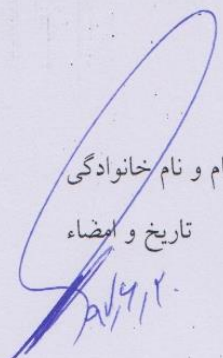 ام و نام خانوادگی
تاریخ و امضاء